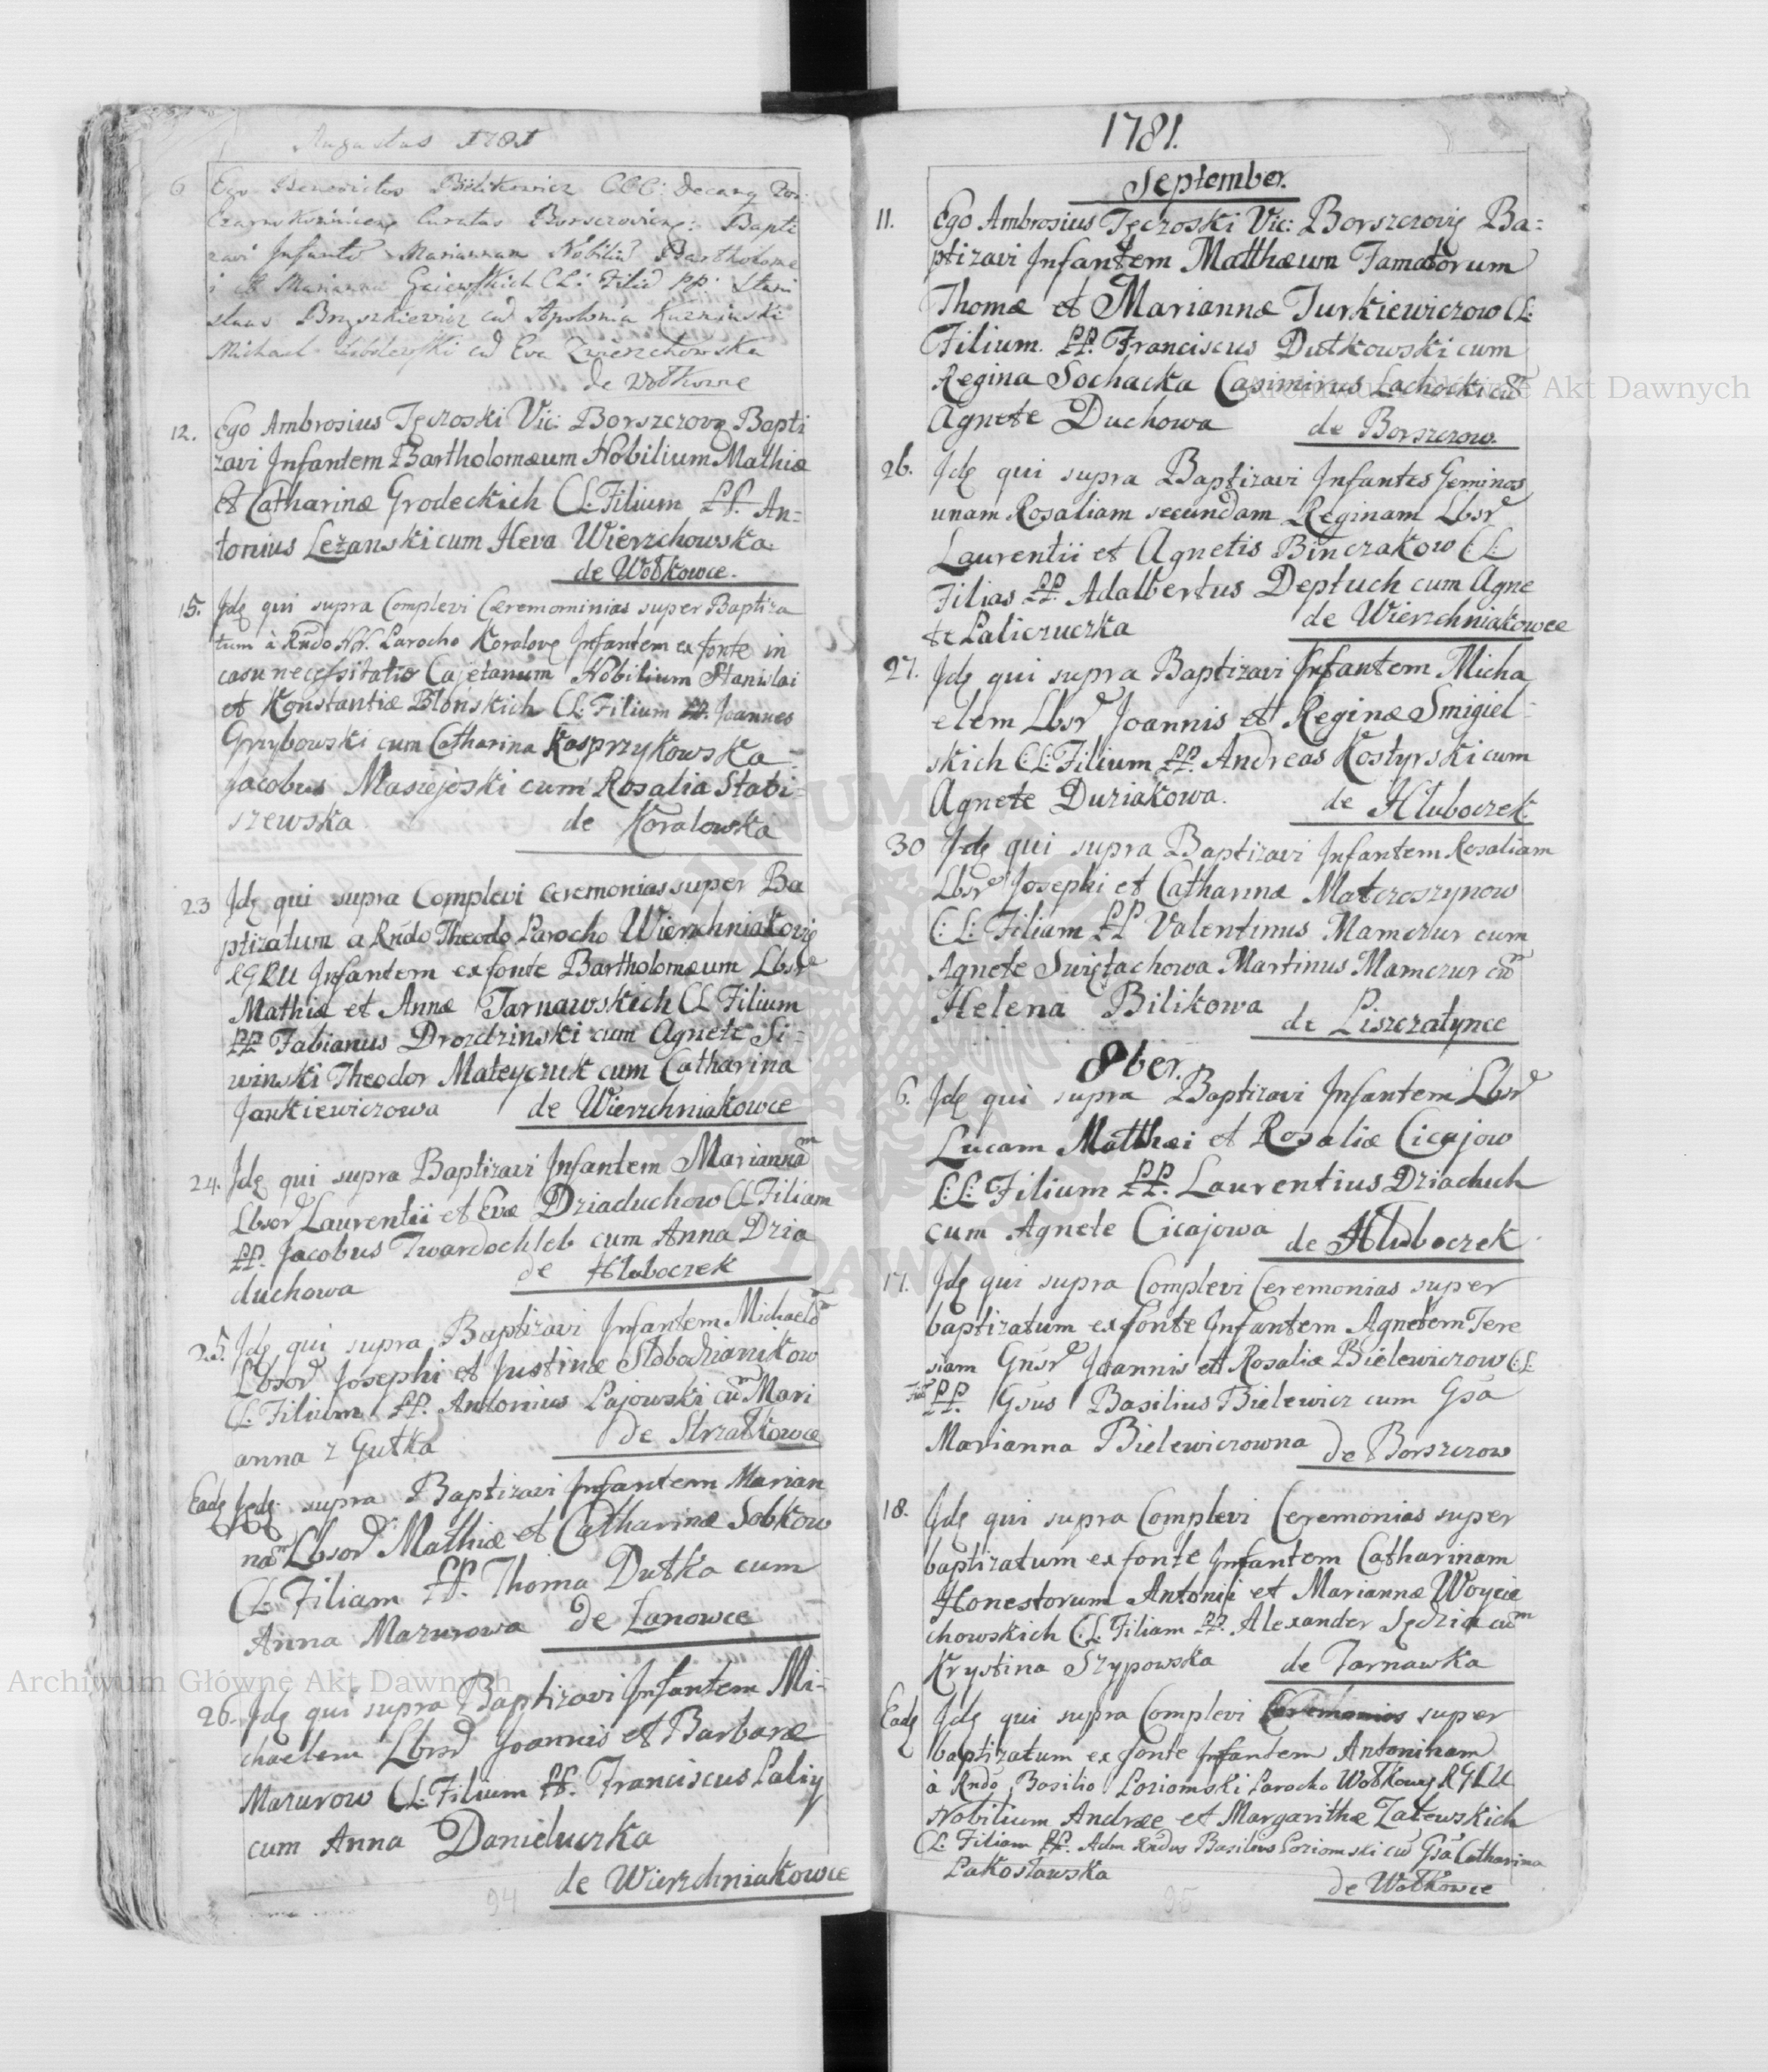 Augustus 1781
6 Ego Benedictus Bilikowicz CCC: Decang
Czarnokozinceng Curatus Borszcovieng: Bapti
zavi Infante Mariannam Nobiliũ Bartholome
i et Marianna Gaiewskich CL: Filiã PP: Stani
slaus Bryszkiewicz cũ Apolonia Kuzminski
Michael cũ Eva Zwierzchowska
de Wołkowce
12. Ego Ambrosius Tęczoski Vic: Borszczovę Bapti
zavi Infantem Bartholomæum Nobilium Mathiæ
et Catharinæ Grodeckich CL: Filium PP. An=
tonius Leżanski cum Heva Wierzchowska
de Wołkowce.
15. Jdę qui supra Complevi Cæremominias super Baptiza
tum à Rndo NN. Parocho Koralovę Infantem ex fonte in
casu necessitatis Cajetanum Nobilium Stanislai
et Konstantiæ Błonskich CL: Filium PP. Joannes
Grzybowski cum Catharina Kasprzykowska
Jacobus Masiejoski cum Rosalia Stabi=
szewska de Koralowska
23 Jdę qui supra Complevi Ceremonias super Ba
ptizatum a Rndo Theodo Parocho Wierzchniakovię
RGRU Infantem ex fonte Bartholomæum Lbsrũ
Mathiæ et Annæ Tarnawskich CL Filium
PP Fabianus Drozdzinski cum Agnete Si=
winski Theodor Mateyczuk cum Catharina
Jankiewiczowa de Wierzchniakowce
24. Jdę qui supra Baptizavi Infantem Mariannam
Lbsorũ Laurentii et Evæ Dziaduchow CL Filiam
PP. Jacobus Twardochleb cum Anna Dzia
duchowa de Hluboczek
25. Jdę qui supra Baptizavi Infantem Michaelẽm
Lbsorũ Josephi et Justinæ Słobodzianikow
CL: Filium PP. Antonius Pajowski cũm Mari
anna z Gutka de Strzałkowce
Eadę Jedę supra Baptizavi Infantem Marian
nãm Lbsorũ Mathiæ et Catharinæ Sobkow
CL: Filiam PP. Thoma Dutka cum
Anna Mazurowa de Łanowce
26. Jdę qui supra Baptizavi Infantem Mi=
chaelem Lbsrũ Joannis et Barbaræ
Mazurow CL: Filium PP. Franciscus Paliy
cum Anna Danieluczka
de Wierzchniakowce
94
1781.
September.
11. Ego Ambrosius Tęczoski Vic: Borszczovię Ba=
ptizavi Infantem Matthæum Famatorum
Thomæ et Mariannæ Turkiewiczow CL:
Filium. PP. Franciscus Dutkowski cum
Regina Sochacka Casimirus Lachocki cũ
Agnete Duchowa de Borszczow.
26. Jdę qui supra Baptizavi Infantes Geminos
unam Rosaliam secundam Reginam Lbsrũ
Laurentii et Agnetis Binczakow C:L:
Filias PP. Adalbertus Deptuch cum Agne
te Paliczuczka de Wierzchniakowce
27. Jdę qui supra Baptizavi Infantem Micha
elem Lbsrũ Joannis et Reginæ Smigiel=
skich C:L: Filium PP. Andreas Kostyrski cum
Agnete Duziakowa. de Hluboczek
30 Jdę qui supra Baptizavi Infantem Rosaliam
Lbsrũ Josephi et Catharinæ Matcroszynow
C:L: Filiam PP Valentinus Mamczur cum
Agnete Swiętachowa Martinus Mamczur cũm
Helena Bilikowa de Liszczatynce
8ber.
6. Jdę qui supra Baptizavi Infantem Lbsrũ
Lucam Matthæi et Rosaliæ Cicajow
C:L: Filium PP. Laurentius Dziaduch
cum Agnete Cicajowa de Hluboczek
17. Jdę qui supra Complevi Ceremonias super
baptizatum ex fonte Infantem Agnetem Tere
siam Gnsrũ Joannis et Rosaliæ Bielewiczow C:L:
Fiã PP. Gsus Basilius Bielewicz cum Gsa
Marianna Bielewiczowna de Borszczow
18. Jdę qui supra Complevi Ceremonias super
baptizatum ex fonte Infantem Catharinam
Honestorum Antonii et Mariannæ Woycie
chowskich C:L: Filiam PP. Alexander Sędzia cũm
Krystina Szypowska de Tarnawka
Eadę Jdę qui supra Complevi Ceremonias super
baptizatum ex fonte Infantem Antoninam
à Rndo Basilio Poziomski Parocho Wołkowę RGRU
Nobilium Andræe et Margarithæ Zalewskich
CL: Filiam PP. Adm Rndus Basilius Poziomski cũ Gsã Catharina
Pakosławska de Wołkowce
95
Archiwum Główne Akt Dawnych
Archiwum Główne Akt Dawnych